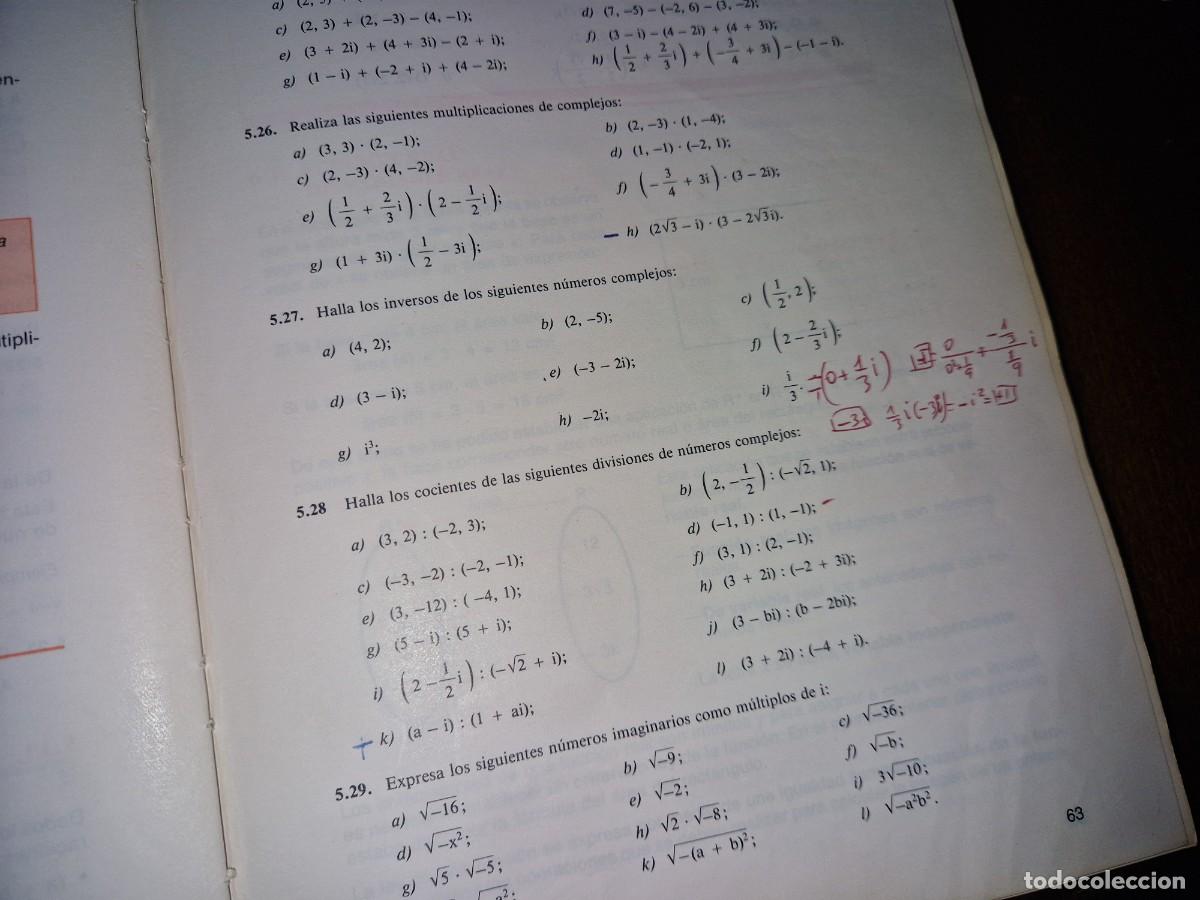 c) (2, 3) + (2, −3) − (4, −1);
d) (7, −5) − (−2, 6) − (3, −2);
e) (3 + 2i) + (4 + 3i) − (2 + i);
f) (3 − i) − (4 − 2i) + (4 + 3i);
g) (1 − i) + (−2 + i) + (4 − 2i);
h) (1/2 + 2/3 i) + (−3/4 + 3i) − (−1 − i).
5.26. Realiza las siguientes multiplicaciones de complejos:
a) (3, 3) · (2, −1);
b) (2, −3) · (1, −4);
c) (2, −3) · (4, −2);
d) (1, −1) · (−2, 1);
e) (1/2 + 2/3 i) · (2 − 1/2 i);
f) (−3/4 + 3i) · (3 − 2i);
g) (1 + 3i) · (1/2 − 3i);
h) (2√3 − i) · (3 − 2√3i).
5.27. Halla los inversos de los siguientes números complejos:
a) (4, 2);
b) (2, −5);
c) (1/2, 2);
d) (3 − i);
e) (−3 − 2i);
f) (2 − 2/3 i);
g) i³;
h) −2i;
i) i/3.
(0 + 1/3 i)
−3i
5.28 Halla los cocientes de las siguientes divisiones de números complejos:
a) (3, 2) : (−2, 3);
b) (2, −1/2) : (−√2, 1);
c) (−3, −2) : (−2, −1);
d) (−1, 1) : (1, −1);
e) (3, −12) : (−4, 1);
f) (3, 1) : (2, −1);
g) (5 − i) : (5 + i);
h) (3 + 2i) : (−2 + 3i);
i) (2 − 1/2 i) : (−√2 + i);
j) (3 − bi) : (b − 2bi);
k) (a − i) : (1 + ai);
l) (3 + 2i) : (−4 + i).
5.29. Expresa los siguientes números imaginarios como múltiplos de i:
a) √−16;
b) √−9;
c) √−36;
d) √−x²;
e) √−2;
f) √−b;
g) √5 · √−5;
h) √2 · √−8;
i) 3√−10;
k) √−(a + b)²;
l) √−a²b².
63
todocoleccion